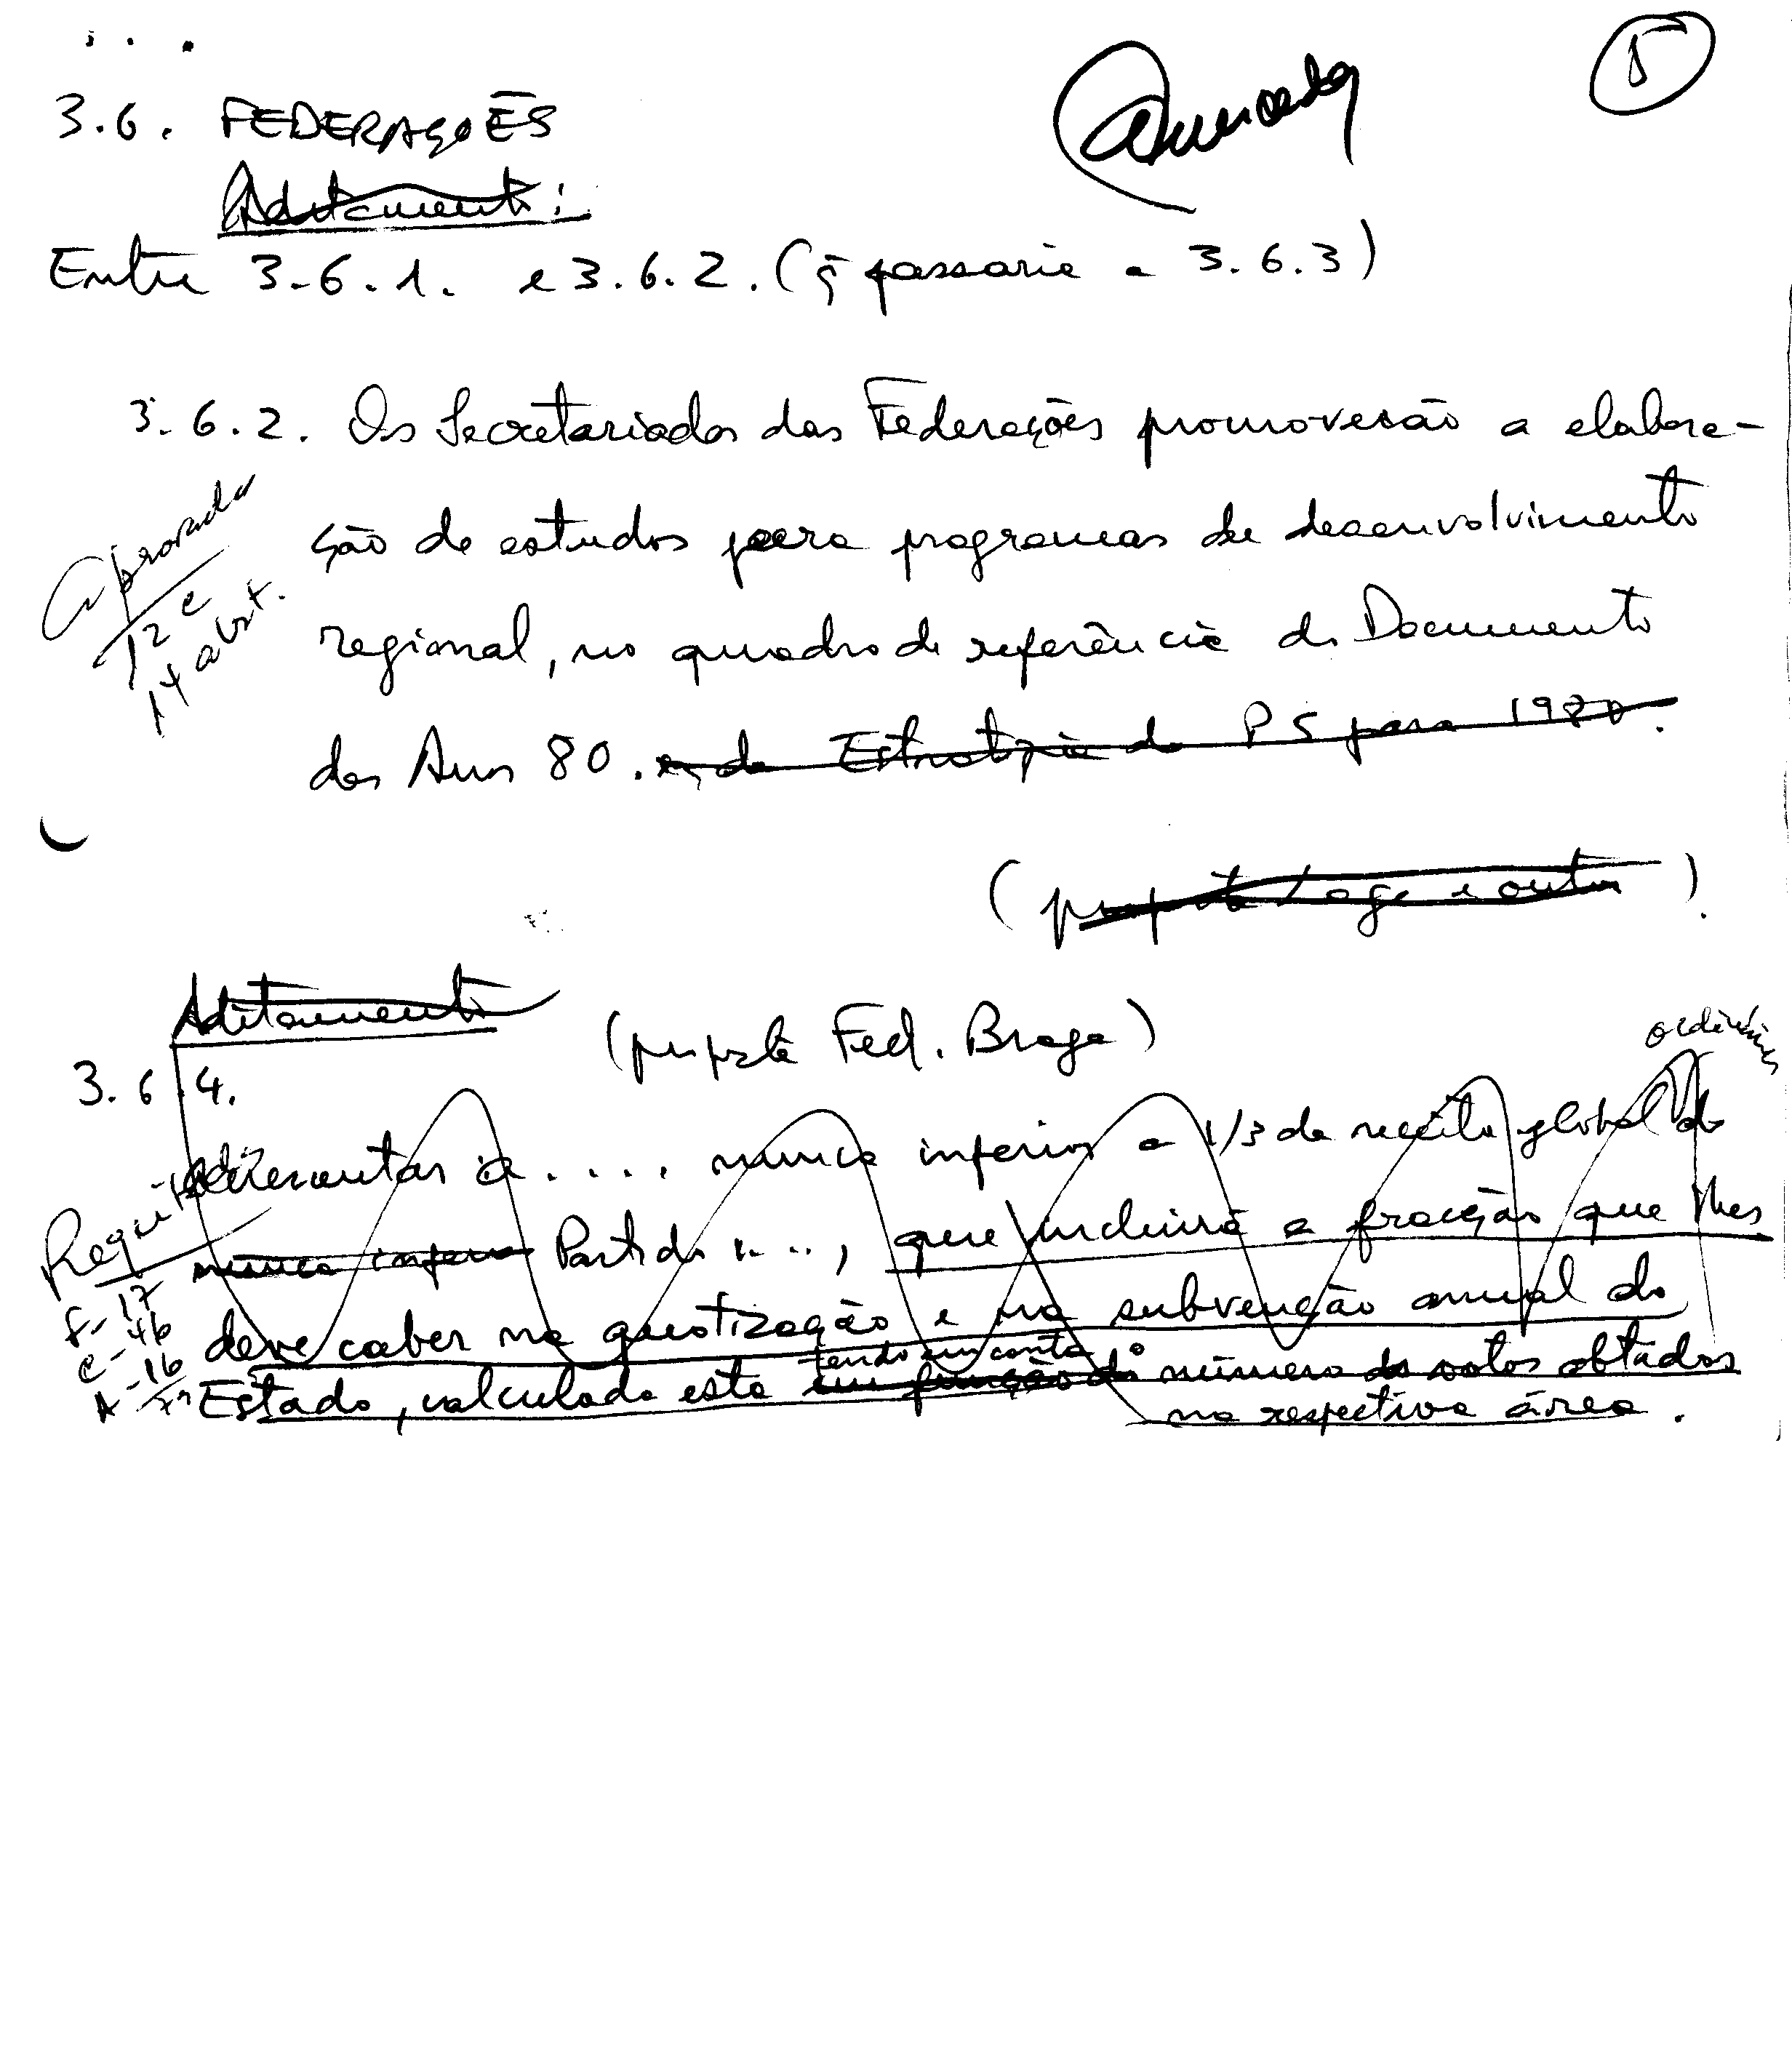 5
3.6. FEDERAÇÕES
Aditamento:
Entre 3.6.1. e 3.6.2. (q̃ passaria a 3.6.3)
3.6.2. Os Secretariados das Federações promoverão a elabora-
ção de estudos para programas de desenvolvimento
regional, no quadro de referência do Documento
dos Anos 80. e da Estratégia do PS para 1980.
Aprovado
12 c
14 abst.
(proposta Lage e outros).
Aditamento
(proposta Fed. Braga)
3.6.4.
ordinárias
Acrescentar a .... nunca inferior a 1/3 da receita global do
nunca inferior Partido ...., que incluirá a fracção que lhes
deve caber na quotização e na subvenção anual do
tendo em conta o
Estado, calculada esta em função do número de votos obtidos
na respectiva área.
F-17
C-46
A-16